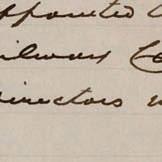 appointed
ailway Co
directors